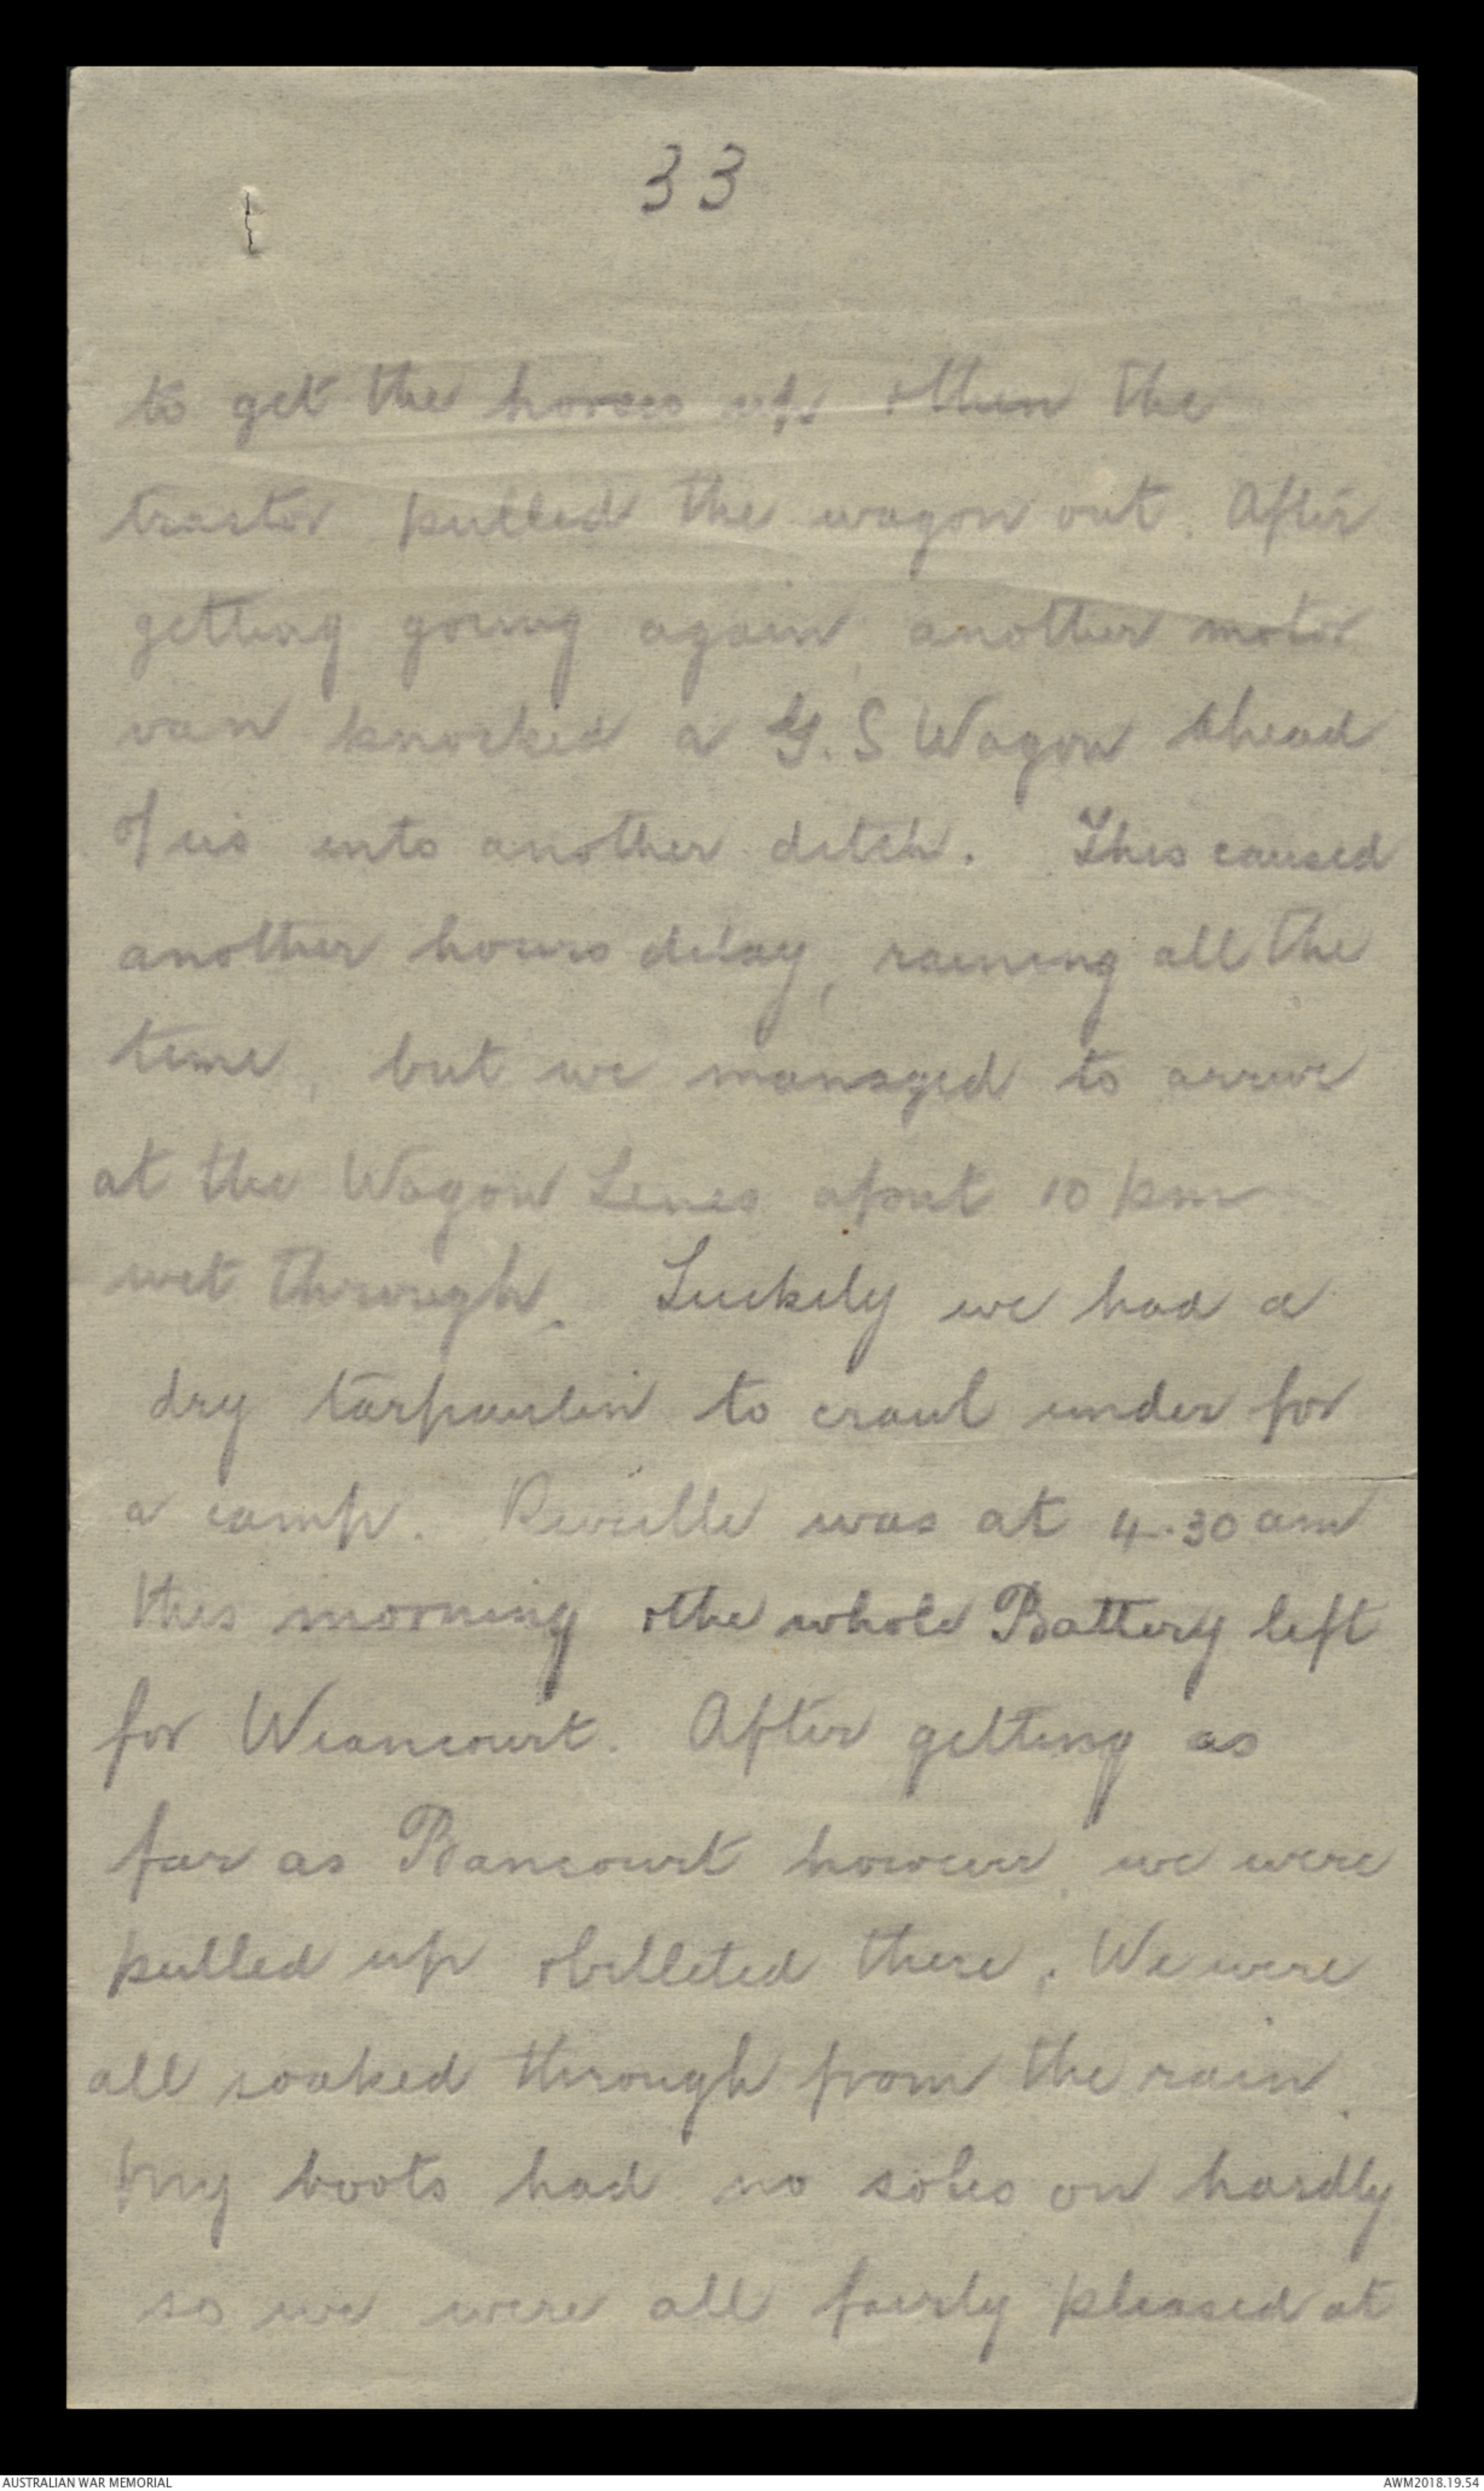 33
to get the horses up & then the
tractor pulled the wagon out. After
getting going again, another motor
van knocked a G.S Wagon ahead
of us into another ditch. This caused
another hours delay, raining all the
time, but we managed to arrive
at the Wagon Lines about 10 pm
wet through. Luckily we had a
dry tarpaulin to crawl under for
a camp. Reveille was at 4.30 am
this morning & the whole Battery left
for Weancourt. After getting as
far as Bancourt however, we were
pulled up & billeted there. We were
all soaked through from the rain.
My boots had no soles on hardly
so we were all fairly pleased at
AUSTRALIAN WAR MEMORIAL
AWM2018.19.54